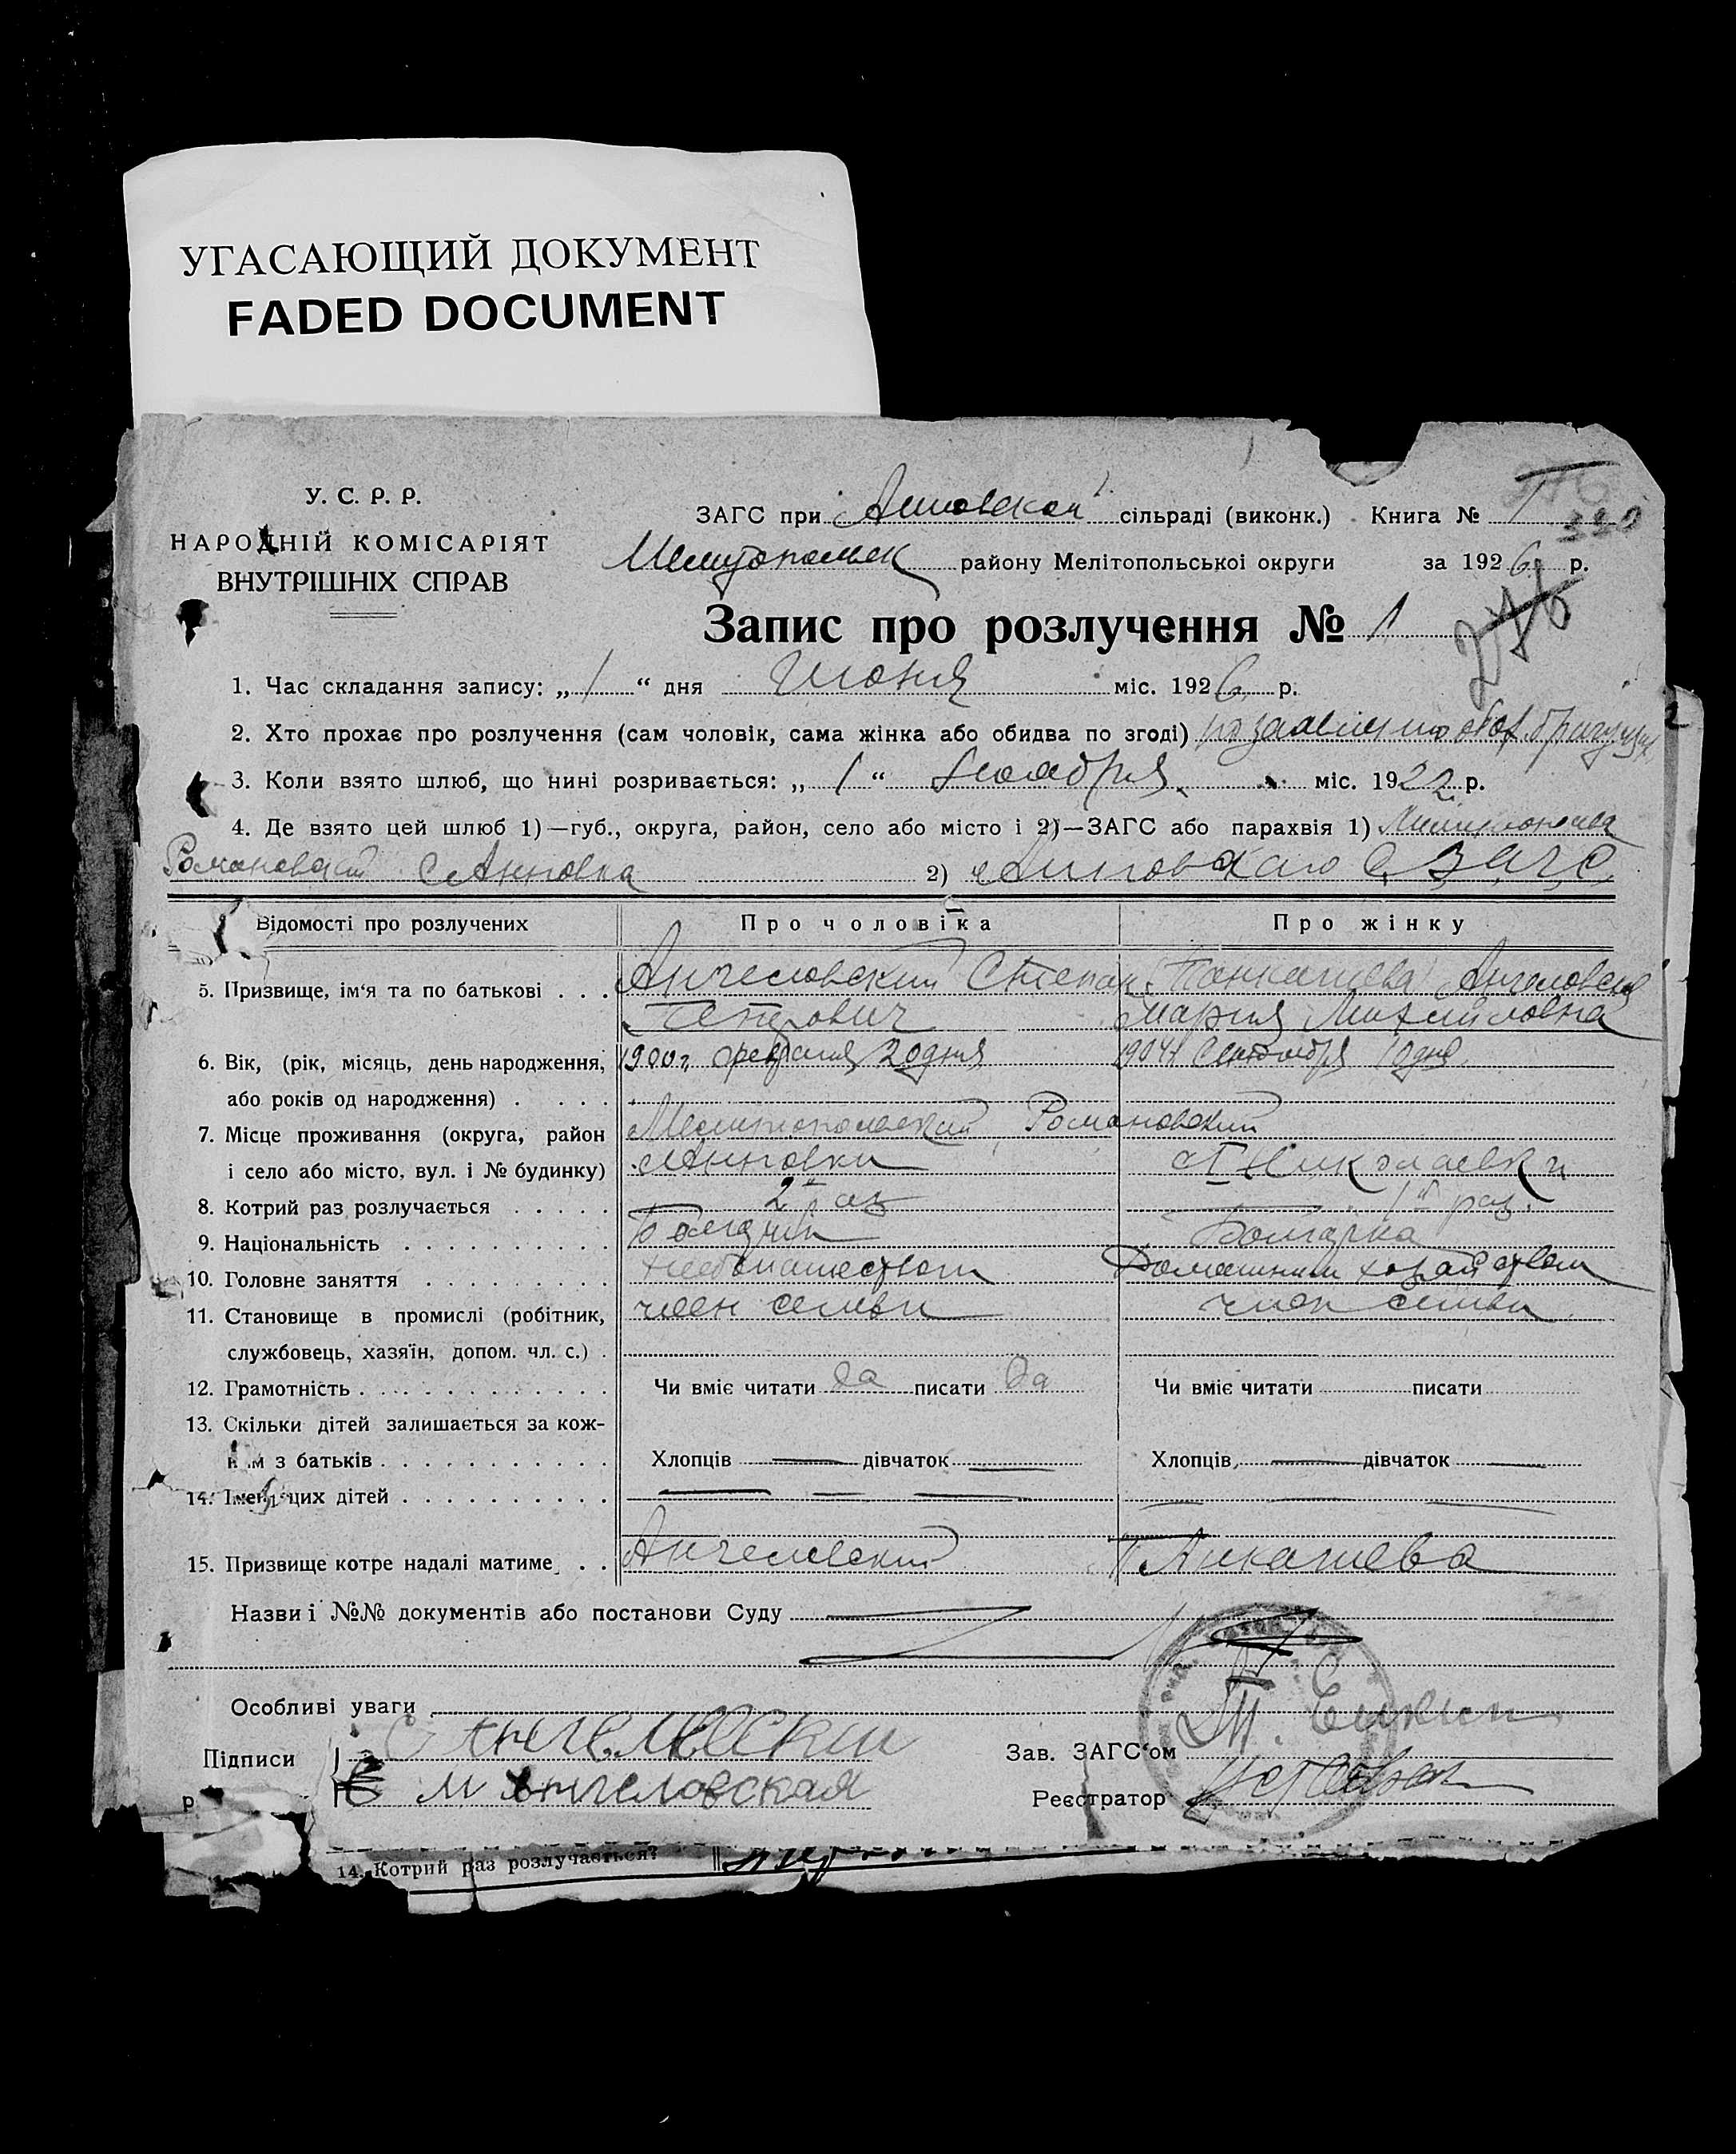 УГАСАЮЩИЙ ДОКУМЕНТ
FADED DOCUMENT
У. С. Р. Р.
НАРОДНІЙ КОМІСАРІЯТ
ВНУТРІШНІХ СПРАВ
ЗАГС при Анновской сільраді (виконк.) Книга № I
220
району Мелітопольської округи за 1926 р.
Запис про розлучення № 1
276
1. Час складання запису: „ 1 “ дня Июня міс. 1926 р.
2. Хто прохає про розлучення (сам чоловік, сама жінка або обидва по згоді) по
3. Коли взято шлюб, що нині розривається: „ 1 “ Ноября міс. 1922 р.
4. Де взято цей шлюб 1)—губ., округа, район, село або місто і 2)—ЗАГС або парахвія 1)
Романовский с Анновка 2) Анновскаго С.ЗАГС
Відомості про розлучених Про чоловіка Про жінку
5. Призвище, ім‘я та по батькові . . . Ангеловский Степан (Панкашева) Ангеловская
Петрович Мария Михайловна
6. Вік, (рік, місяць, день народження, 1900 г. февраля 20 дня 1904 г. Сентября 10 дня
або років од народження) . . . . .
7. Місце проживання (округа, район Мелитопольский Романовский
і село або місто, вул. і № будинку) Анновки Николаевки
8. Котрий раз розлучається . . . . . 2й раз 1й раз.
9. Національність . . . . . . . . . . Болгарин Болгарка
10. Головне заняття . . . . . . . . . Хлебопашеством Домашним хозяйством
11. Становище в промислі (робітник, член семьи член семьи
службовець, хазяїн, допом. чл. с.) .
12. Грамотність . . . . . . . . . . . . Чи вміє читати да писати да Чи вміє читати писати
13. Скільки дітей залишається за кож-
ним з батьків . . . . . . . . . . . Хлопців — дівчаток — Хлопців — дівчаток —
14. Імена цих дітей . . . . . . . . . . — — — — — —
15. Призвище котре надалі матиме . . Ангеловский Панкашева
Назви і №№ документів або постанови Суду
Особливі уваги
Підписи С Ангеловский
Зав. ЗАГС‘ом
М Ангеловская
Реєстратор
14. Котрий раз розлучається?